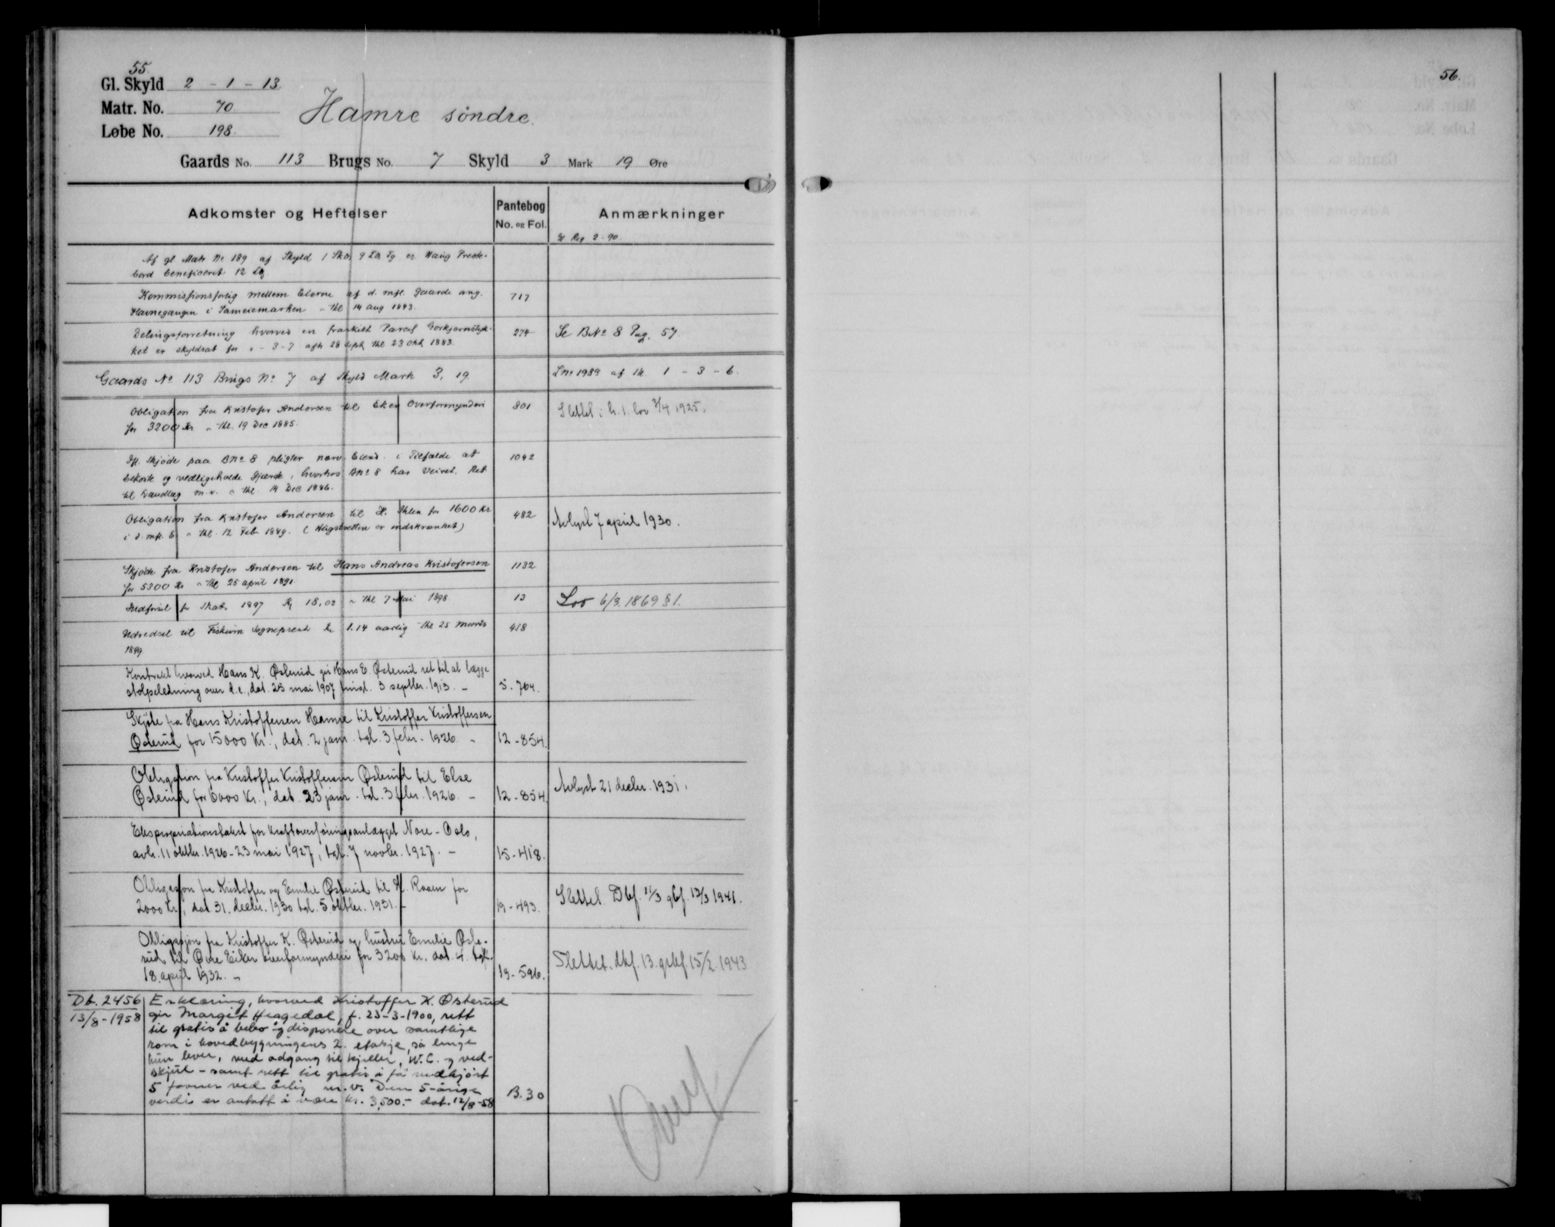 55
Gl. Skyld 2 - 1 - 13
Matr. No. 70
Løbe No. 198
Hamre søndre.
Gaards No. 113 Brugs No. 7 Skyld 3 Mark 19 Øre
Adkomster og Heftelser
Pantebog
No. og Fol.
Anmærkninger
Af gl Matr Nr 189 af Skyld 1 Skd 9 er Haug Præste-
bord beneficeret 12
Kommissionsforlig mellem Eierne af d. mfl. Gaarde ang. 717
Havnegangen i Sameiemarken - thl 14 aug 1843.
Delingsforretning hvorved en fraskilt Parcel 274 Se BNo 8 Pag. 57.
ket er skyldsat for " - 3 - 7 afh 28 sept, thl 23 okt 1883.
Gaards No 113 Brugs No 7 af Skyld Mark 3, 19 LNr 1989 af Sk 1 - 3 - 6.
Obligation fra Kristofer Andersen til Eker Overformynderi 801 Slettet i h. t. lov 3/4 1925.
for 3200 Kr " thl. 19 Dec 1885.
Ifl. Skjøde paa BNo 8 pligter nærv. Eiend. i Tilfælde at 1042
bekoste og vedligeholde Gjærde, hvorhos BNo 8 har Veiret, Ret
til Vandtag m.v. " thl 14 Dec 1886.
Obligation fra Kristofer Andersen til H. for 1600 Kr 482 Avlyst 7 april 1930.
i d. mfl. b. " thl 12 Feb 1889. (Hugstretten er indskrænket)
Skjøde fra Kristofer Andersen til Hans Andreas Kristofersen 1132
for 5300 Kr " thl 25 april 1891
for Skat 1897 18,02 " thl 7 Mai 1898 13 Lov 6/3. 1869 § 1.
Udredsel til Fiskum Sogneprest Kr 1.14 aarlig thl 25 marts 418
1899
Kontrakt hvorved Hans K. Østerud gir Hans E. Østerud ret til at lægge
stolpeledning over d.e., dat. 25 mai 1907 tinl. 3 septbr. 1913. - 5. 764.
Skjøte fra Hans Kristoffersen Hamre til Kristoffer Kristoffersen
Østerud for 15000 Kr., dat. 2 janr. tgl. 3 febr. 1926. - 12 - 854.
Obligation fra Kristoffer Kristoffersen Østerud til Else Avlyst 21 decbr. 1931.
Østerud for 6000 Kr., dat. 23 janr. tgl. 3 febr. 1926. - 12 - 854.
Ekspropriationstakst for kraftoverføringsanlægget Nore - Oslo,
avh. 11 oktbr. 1926 - 23 mai 1927, tgl. 7 novbr. 1927. - 15 - 418.
Obligasjon fra Kristoffer og Emilie Østerud til H. Raaen for Slettet. Dbf. 11/3 gbf 13/3 1941.
2000 Kr., dat. 31. decbr. 1930 tgl. 5 oktbr. 1931. - 19 - 493.
Obligasjon fra Kristoffer K. Østerud og hustru Emilie Øste-
rud til Øvre Eiker overformynderi for 3200 kr. dat. 4. tgl. Slettet. dbf. 13. gbf 15/2. 1943
18 april 1932. - 19 - 596.
Db. 2456
13/8 - 1958
Erklæring, hvorved Kristoffer K. Østerud
gir Margit Heggedal, f. 23-3-1900, rett
til gratis å bebo og disponere over samtlige
rom i hovedbygningens 2. etasje, så lenge
hun lever, med adgang til kjeller, W.C. og ved-
skjul - samt rett til gratis å få vedkjørt
5 favner ved årlig m.v. Den 5-årige B. 30
verdi er antatt å være kr. 3,500.- dat. 12/8 - 58
56.